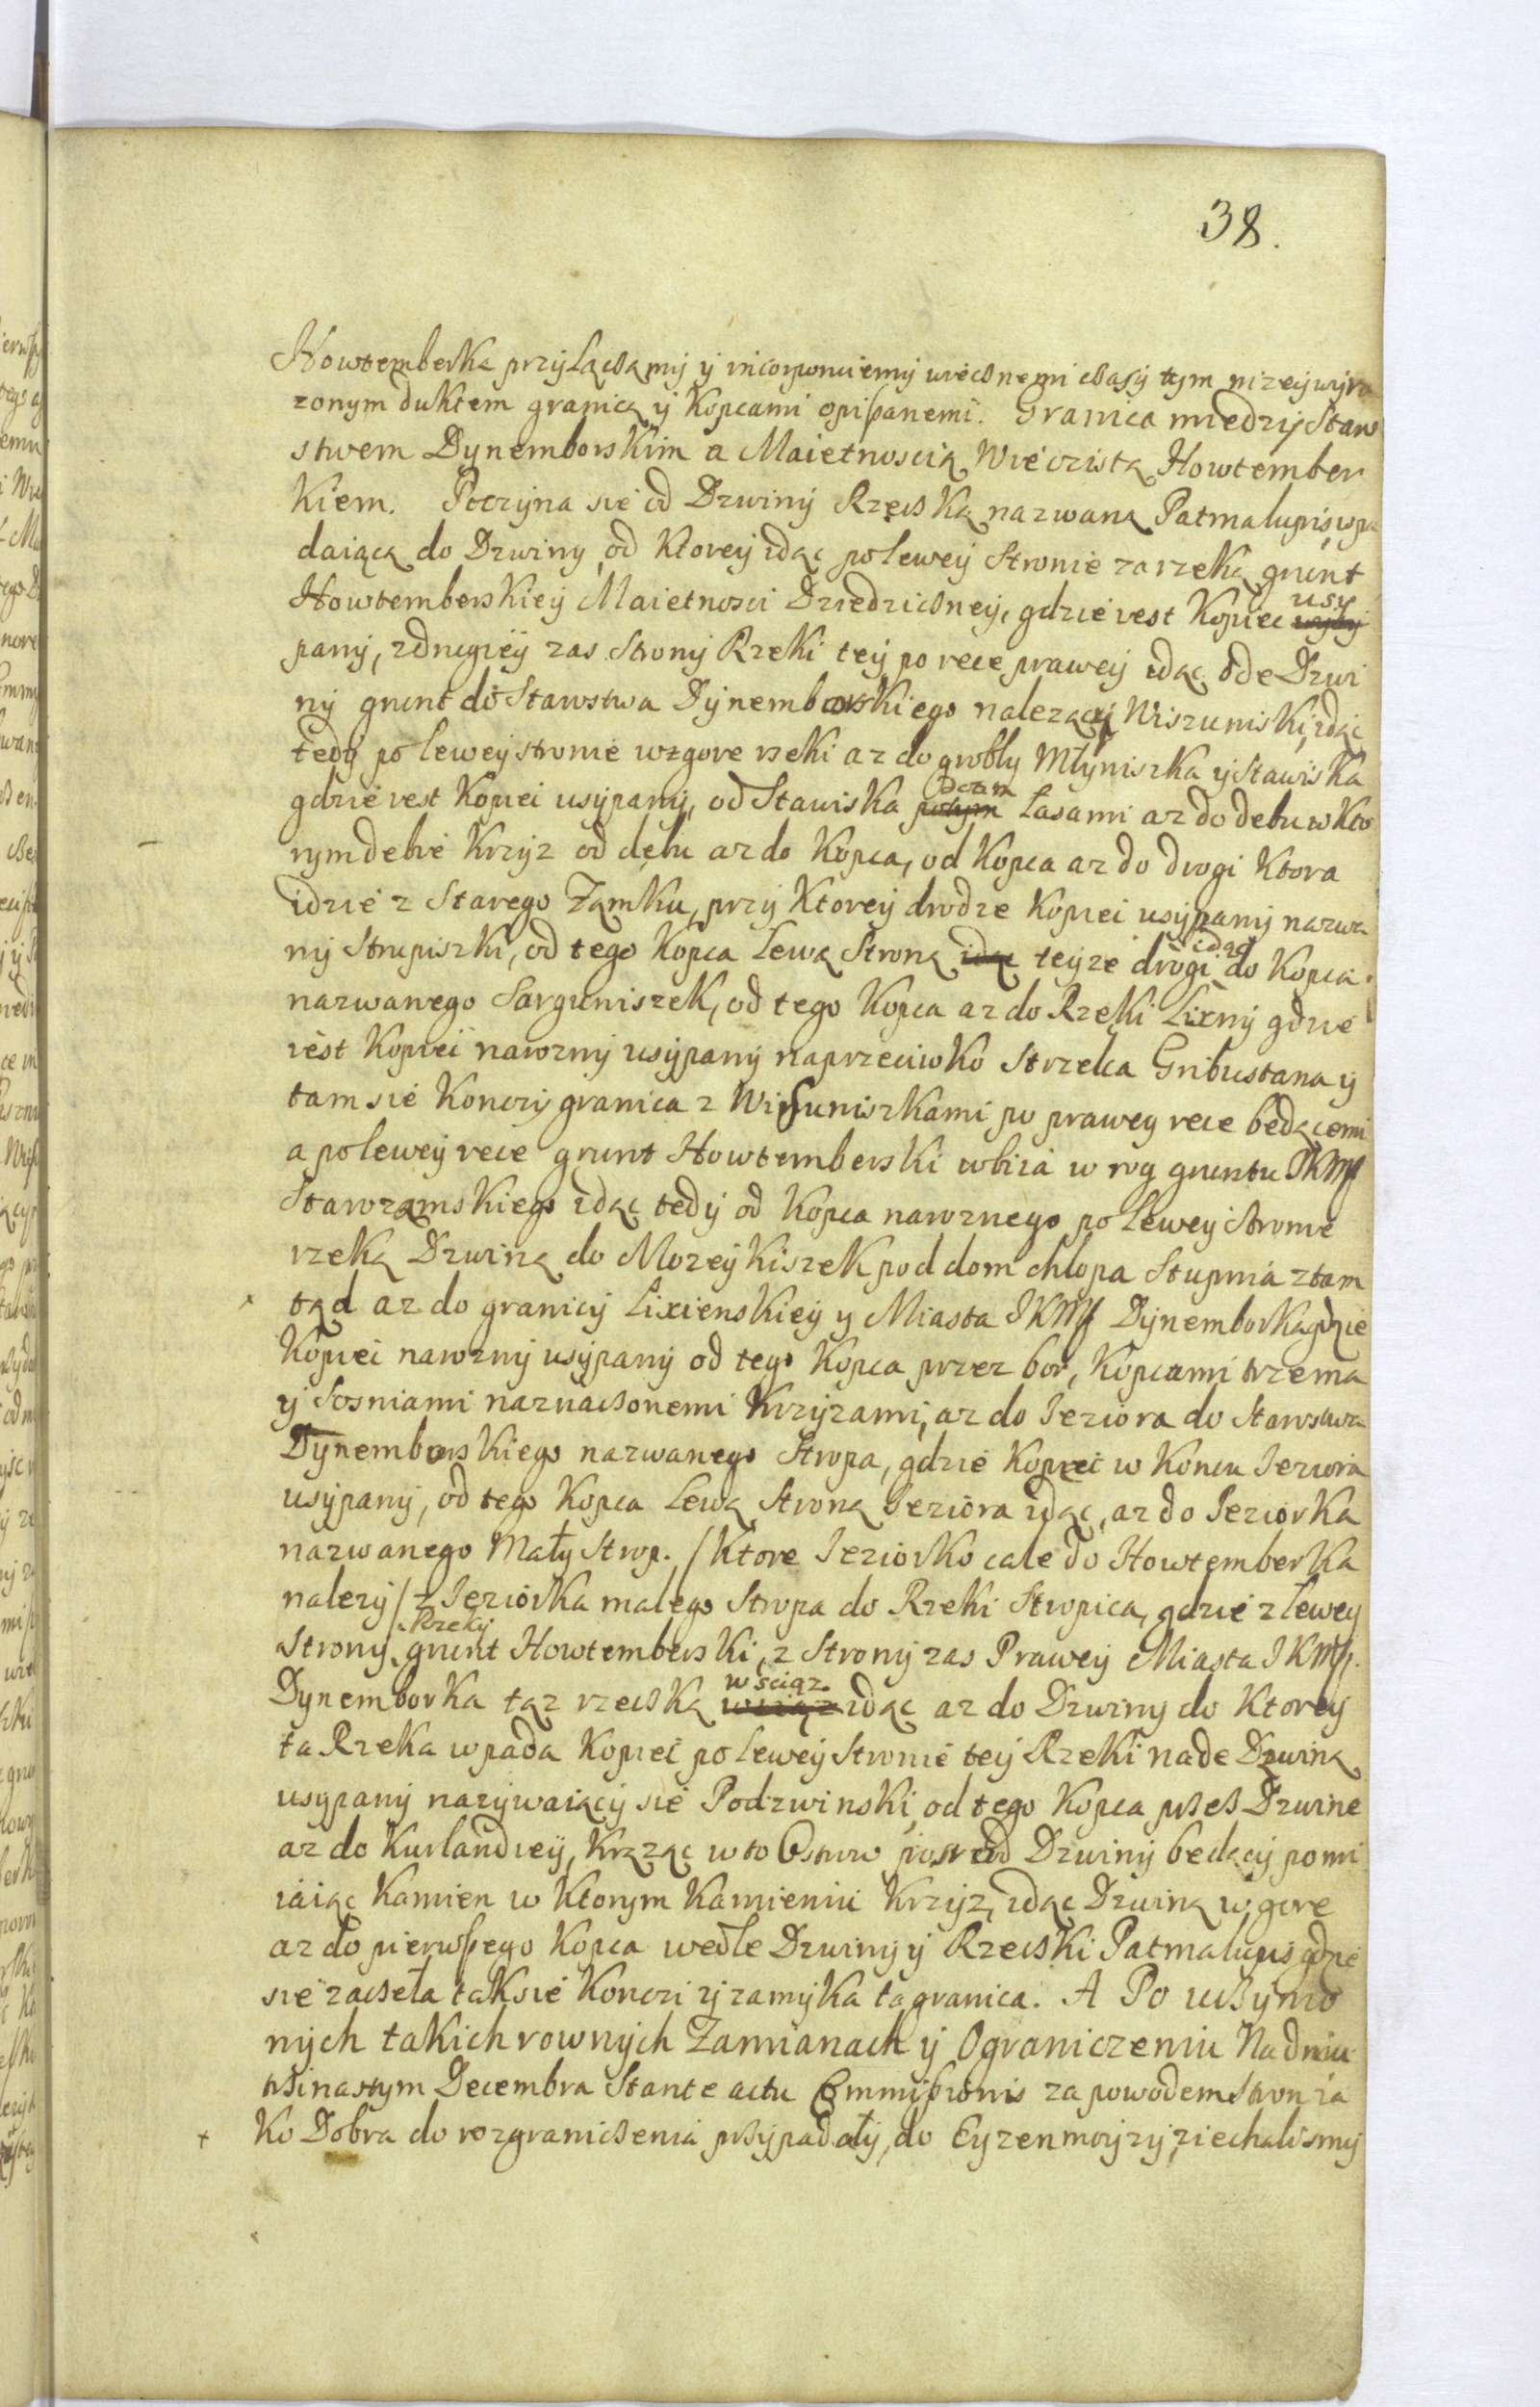 38.
Howtemberka przyłącsamy y incorporuiemy wiecsnemi csasy tym nizey wyra
zonym duktem granicą y Kopcami opisanemi. Granica miedzy Staro
stwem Dynemborskim a Maietnoscią Wieczistą Howtember
kiem. Poczyna sie od Dzwiny Rzecską nazwaną Patmalupis, wpa
daiącą do Dzwiny, od Ktorey idąc po lewey Stronie za rzeką grunt
Howtemberskiey Maietnosci Dziedzicsney, gdzie iest Kopiec usy
pany, z drugiey zas Strony Rzeki tey po rece prawey idąc ode Dzwi
ny grunt do Starostwa Dynemborskiego nalezący Wiszuniski, idąc
tedy po lewey stronie wzgore rzeki az do grobly Młyniszka y Stawiska
gdzie iest Kopiec usypany, od Stawiska Lasami az do debu w Kto
rym debie Krzyz od debu az do Kopca, od Kopca az do drogi Ktora
idzie z Starego Zamku, przy Ktorey drodze Kopiec usypany nazwa
ny Strupiszki, od tego Kopca Lewą Stroną teyze drogi idąc do Kopca
nazwanego Sarguniszek, od tego Kopca az do Rzeki Lixny gdzie
iest Kopiec narozny usypany naprzeciwko Strzelca Gribustana y
tam sie Konczy granica z Wisuniszkami po prawey rece bedącemi
a po lewey rece grunt Howtemberski wbiia w rog gruntu JKMsci
Starozamskiego idąc tedy od Kopca naroznego po lewey stronie
rzeką Dzwiną do Mozeykiszek pod dom chlopa Stupnia ztam
tąd az do granicy Lixienskiey y Miasta JKMsci Dynemborka gdzie
Kopiec narozny usypany od tego Kopca przez bor, Kopcami trzema
y Sosniami naznacsonemi Krzyzami, az do Jeziora do Starostwa
Dynemborskiego nazwanego Stropa, gdzie Kopiec w Koncu Jeziora
usypany, od tego Kopca Lewą Stroną Jeziora idąc, az do Jeziorka
nazwanego Mały Strop. /Ktore Jeziorko cale do Howtemberka
nalezy/ z Jeziorka malego Stropa do Rzeki Stropica, gdzie z lewey
Strony Rzeky grunt Howtemberski, z Strony zas Prawey Miasta JKMsci.
Dynemborka tąz rzecską wsciąz idąc az do Dzwiny do Ktorey
ta Rzeka wpada Kopiec po lewey Stronie tey Rzeki nade Dzwiną
usypany nazywaiący sie Podzwinski, od tego Kopca przes Dzwine
az do Kurlandiey, Krząząc w to Ostrow posrod Dzwiny bedący pomi
iaiąc Kamien w Ktorym Kamieniu Krzyz, idąc Dzwiną w gore
az do pierwszego Kopca wedle Dzwiny y Rzecski Patmalupis gdzie
sie zacseła tak sie Konczi y zamyka ta granica. A Po ucsynio
nych takich rownych Zamianach y Ograniczeniu Na dniu
trsinastym Decembra Stante actu Commissionis za powodem Stron ia
Ko Dobra do rozgranicsenia prsypadały, do Eyzenmoyzy, ziechalismy